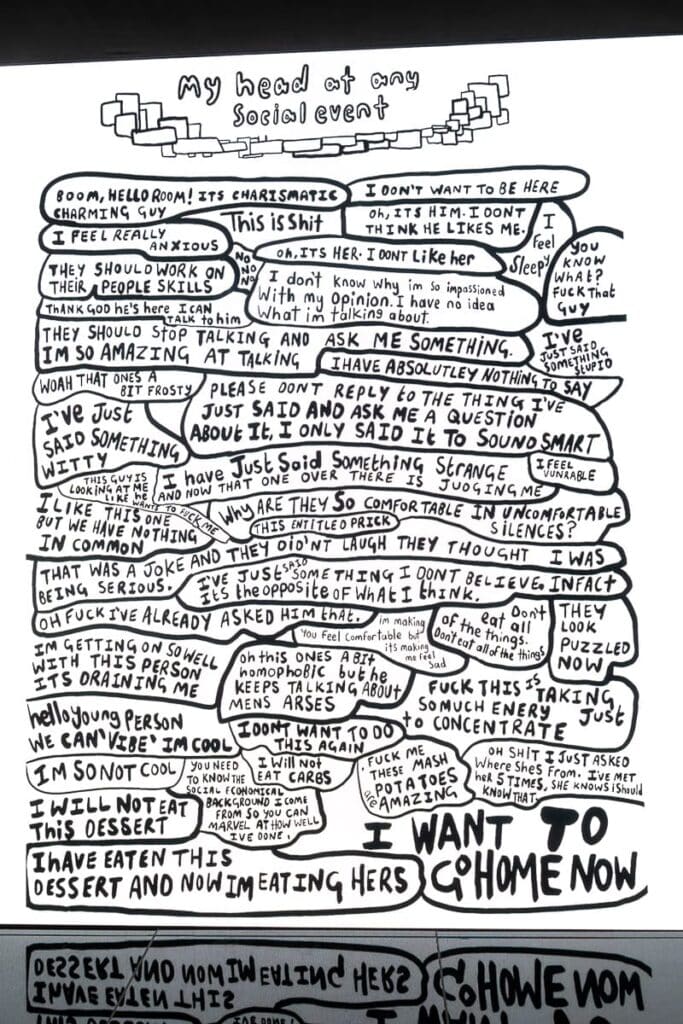 My head at any
Social event
BOOM, HELLO ROOM! ITS CHARISMATIC
CHARMING GUY
I DON'T WANT TO BE HERE
This is Shit
Oh, ITS HIM. I DONT
THINK HE LIKES ME.
I
Feel
Sleepy
I FEEL REALLY
ANXIOUS
NO
NO
NO
Oh, ITS HER. I DONT Like her
YOU
KNOW
WhAt?
FUCK that
GUY
THEY SHOULD WORK ON
THEIR PEOPLE SKILLS
I don't know why im so impassioned
With my Opinion. I have no idea
What im talking about.
THANK GOD he's here I CAN
TALK to him
THEY SHOULD StOP TALKING AND ASK ME SOMETHING.
IM SO AMAZING AT TALKING
I'VE
JUST SAID
SOMETHING
STUPID
I HAVE ABSOLUTLEY NOTHING TO SAY
WOAH THAT ONES A
BIT FROSTY
PLEASE DONT REPLY to THE THING I'VE
JUST SAID AND ASK ME A QUESTION
ABOUT It, I ONLY SAID It TO SOUND SMART
I'VE Just
SAID SOMETHING
WITTY
THIS GUY IS
LOOKING AT ME
LIKE he
WANTS TO FUCK ME
I have Just Said Something STRANGE
AND NOW THAT ONE OVER THERE IS JUDGING ME
I FEEL
VUNRABLE
I LIKE THIS ONE
BUT WE HAVE NOTHING
IN COMMON
Why ARE THEY SO COMFORTABLE IN UNCOMFORTABLE
SILENCES?
THIS ENTITLED PRICK
THAT WAS A JOKE AND THEY DiD'NT LAUGH THEY THOUGHT I WAS
BEING SERIOUS.
I'VE JUST SAID SOMETHING I DONT BELIEVE, INFACt
It's the opposite OF WhAt I think.
OH FUCK I'VE ALREADY ASKED HIM that.
im making
You feel Comfortable but
its making
me feel
Sad
Don't
eat all
of the things.
Don't eat all of the things
THEY
LOOK
PUZZLED
NOW
IM GETTING ON SO WELL
WITH THIS PERSON
ITS DRAINING ME
Oh this ONES A BIt
homophobic but he
KEEPS TALKING ABOUT
MENS ARSES
FUCK THIS IS TAKING
SO MUCH ENERY Just
to CONCENTRATE
hello young PERSON
WE CAN 'VIBE' IM COOL
I DONT WANT TO DO
THIS AGAIN
IM SO NOT COOL
YOU NEED
TO KNOW THE
SOCIAL ECONOMICAL
BACKGROUND I COME
FROM SO YOU CAN
MARVEL AT HOW WELL
IVE DONE.
I Will Not
EAT CARBS
FUCK ME
THESE MASH
POTATOES
are AMAZING
OH SHIT I JUST ASKED
Where ShES From. I'VE MET
her 5 TIMES, SHE KNOWS i Should
KNOW THAT.
I WILL NOT EAT
This DESSERT
I hAVE EATEN THIS
DESSERT AND NOW IM EATING HERS
I WANT TO
GO HOME NOW